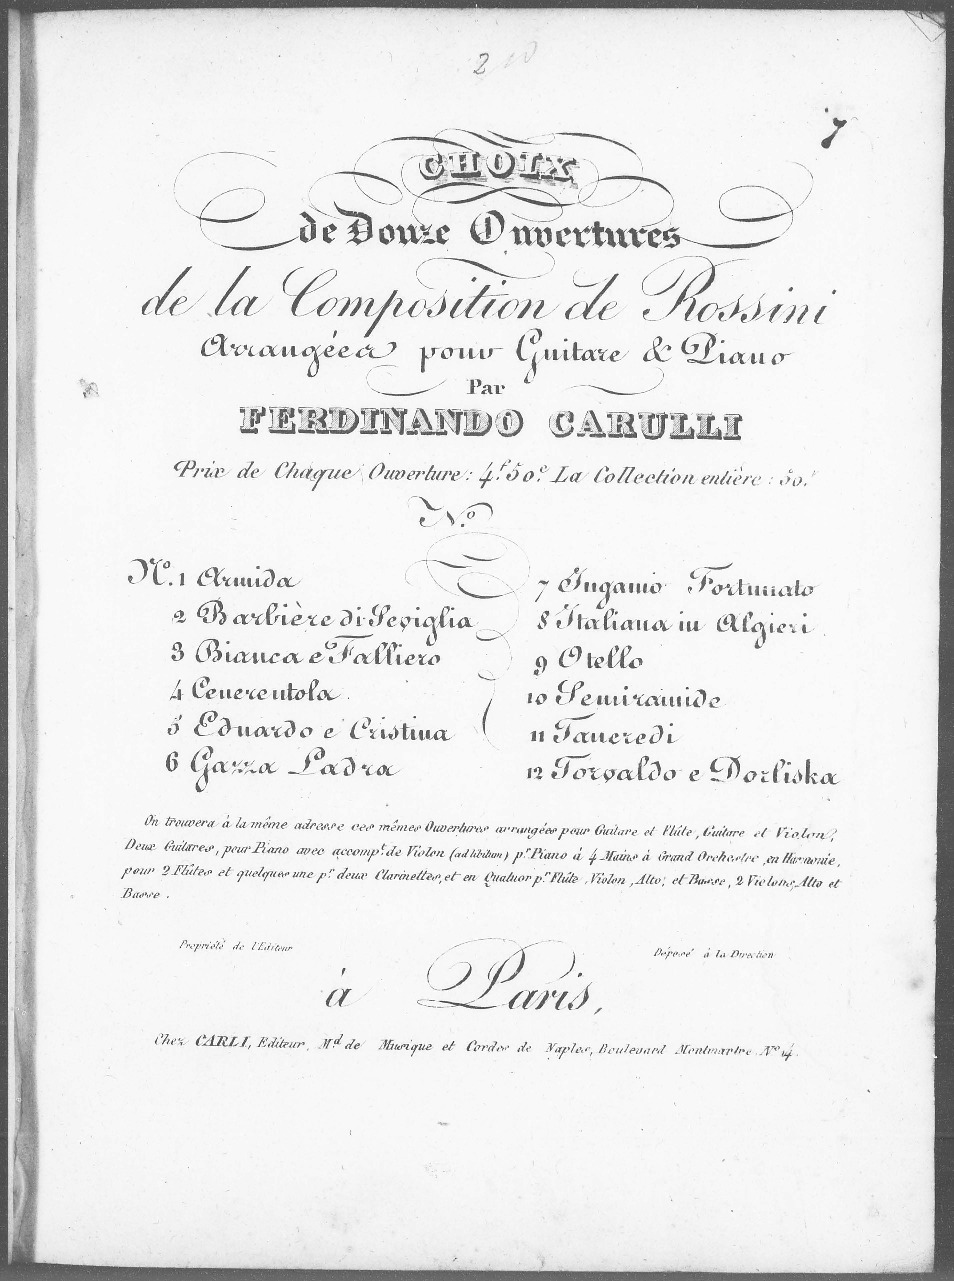 2
7
CHOIX
de Douze Ouvertures
de la Composition de Rossini
Arrangées pour Guitare & Piano
Par
FERDINANDO CARULLI
Prix de Chaque Ouverture : 4.f 50.c La Collection entière : 50.f
N.o
N.o 1 Armida
2 Barbière di Seviglia
3 Bianca e Falliero
4 Cenerentola
5 Eduardo e Cristina
6 Gazza Ladra
7 Inganno Fortunato
8 Italiana in Algieri
9 Otello
10 Semiramide
11 Tancredi
12 Torvaldo e Dorliska
On trouvera à la même adresse ces mêmes Ouvertures arrangées pour Guitare et Flûte, Guitare et Violon,
Deux Guitares, pour Piano avec accomp.t de Violon (ad libitum) p.r Piano à 4 Mains à Grand Orchestre, en Harmonie,
pour 2 Flûtes et quelques une p.r deux Clarinettes, et en Quatuor p.r Flûte, Violon, Alto, et Basse, 2 Violons, Alto et
Basse.
Propriété de l'Editeur
Déposé à la Direction
à Paris,
Chez CARLI, Editeur, M.d de Musique et Cordes de Naples, Boulevard Montmartre N.o 14.